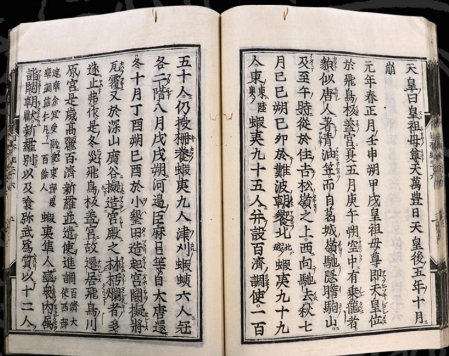 天皇曰皇祖母尊天萬豊日天皇後五年十月
崩
元年春正月壬申朔甲戌皇祖母尊即天皇位
於飛鳥板蓋宮夏五月庚午朔空中有乗龍者
貌似唐人著青油笠而自葛城嶺馳隠膽駒山
及至午時從於住吉松嶺之上西向馳去秋七
月己巳朔己卯於難波朝饗北北越蝦夷九十九
人東東陸奥蝦夷九十五人并設百濟調使一百
五十人仍授柵養蝦夷九人津刈蝦蛦六人冠
各二階八月戊戌朔河邊臣麻呂等自大唐還
冬十月丁酉朔己酉於小墾田造起宮闕擬將
瓦覆又於深山廣谷擬造宮殿之材朽爛者多
遂止弗作是冬災飛鳥板蓋宮故遷居飛鳥川
原宮是歳高麗百濟新羅並遣使進調百濟大使西部
達率余宜受副使東部恩率調信仁凡一百餘人蝦夷隼人率衆内属
詣闕朝献新羅別以及飡弥武為質以十二人